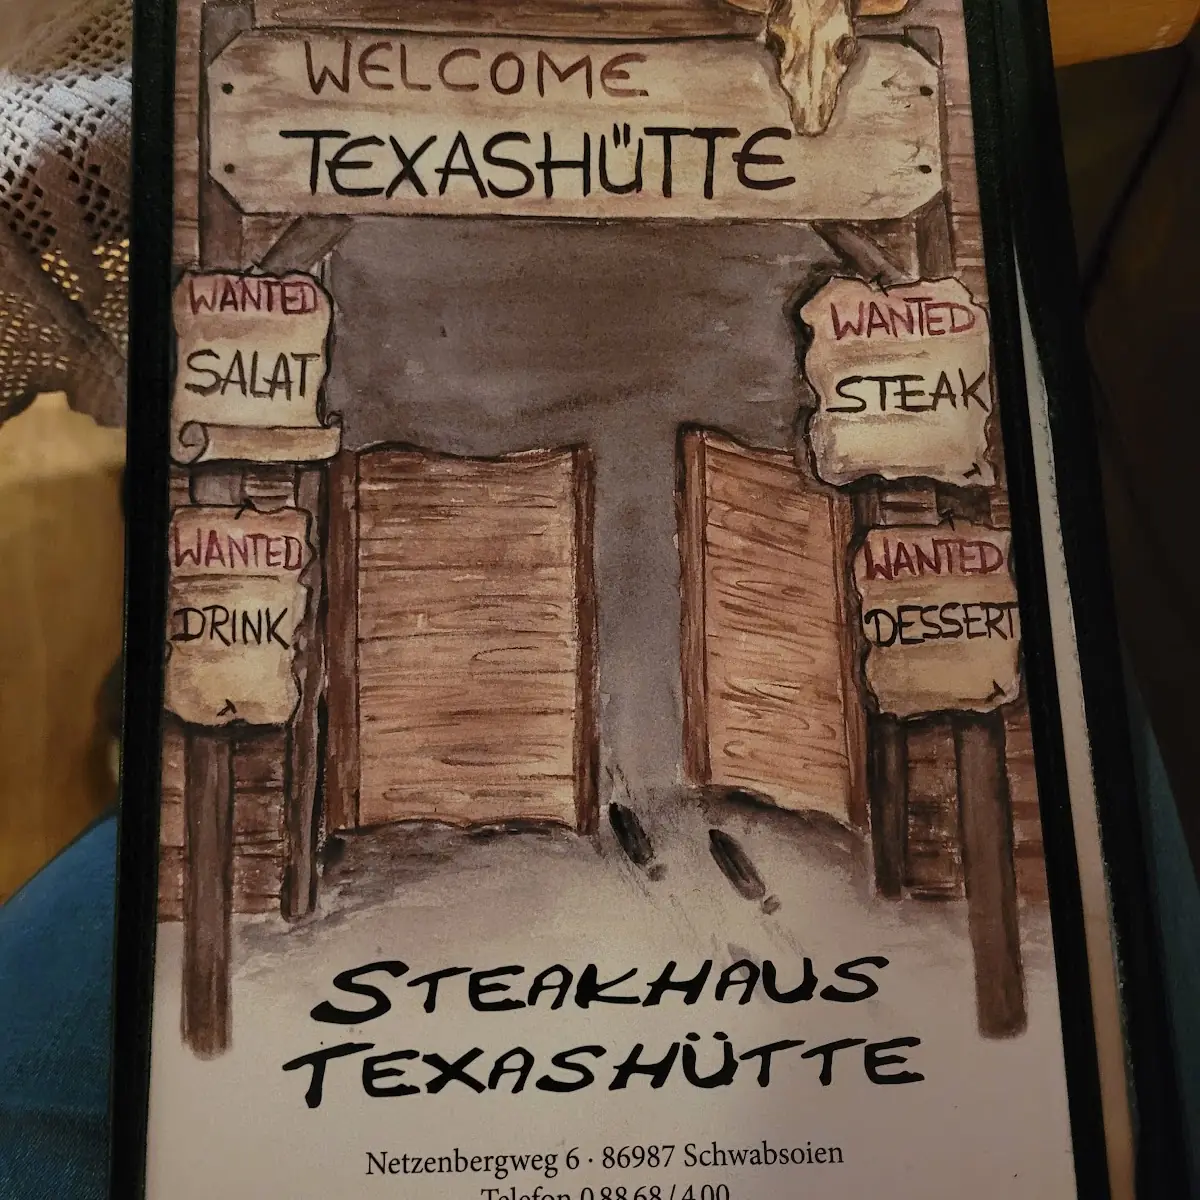 WELCOME
TEXASHÜTTE
WANTED
SALAT
WANTED
STEAK
WANTED
DRINK
WANTED
DESSERT
STEAKHAUS
TEXASHÜTTE
Netzenbergweg 6 · 86987 Schwabsoien
Telefon 0 88 68 / 4 00